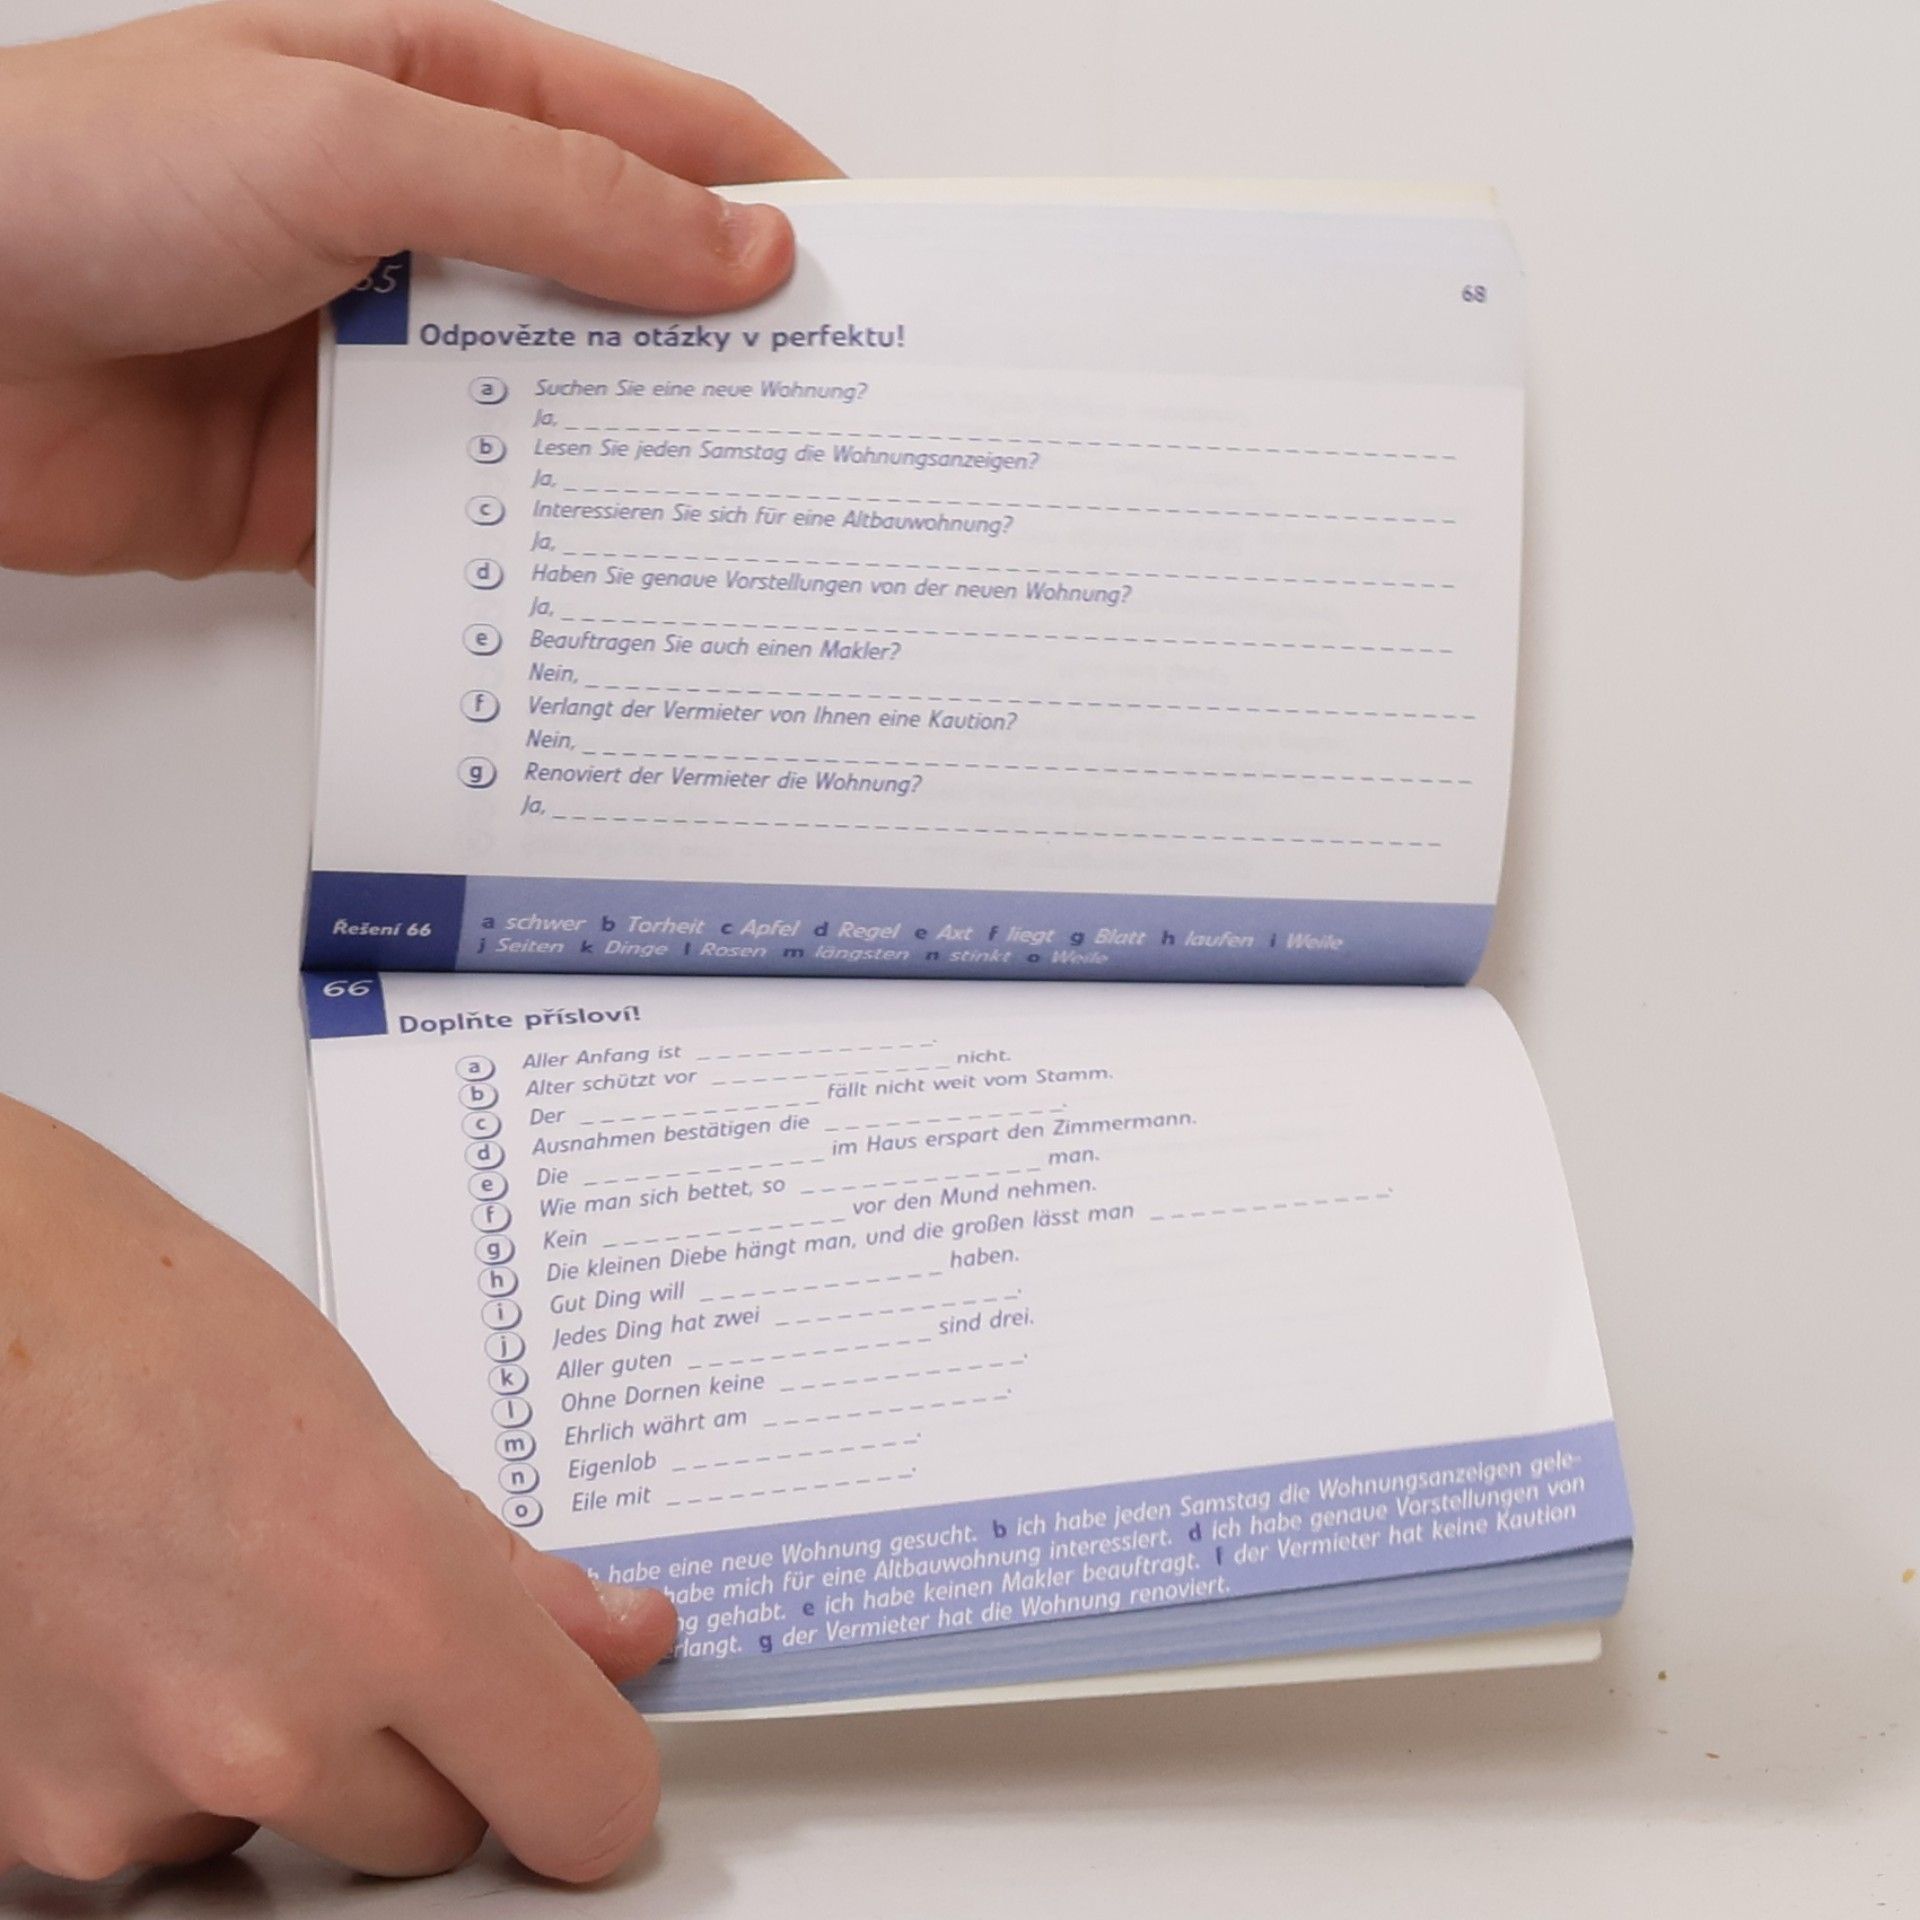 68
Odpovězte na otázky v perfektu!
a Suchen Sie eine neue Wohnung?
Ja,
b Lesen Sie jeden Samstag die Wohnungsanzeigen?
Ja,
c Interessieren Sie sich für eine Altbauwohnung?
Ja,
d Haben Sie genaue Vorstellungen von der neuen Wohnung?
Ja,
e Beauftragen Sie auch einen Makler?
Nein,
f Verlangt der Vermieter von Ihnen eine Kaution?
Nein,
g Renoviert der Vermieter die Wohnung?
Ja,
Řešení 66 a schwer b Torheit c Apfel d Regel e Axt f liegt g Blatt h laufen i Weile
j Seiten k Dinge l Rosen m längsten n stinkt o Weile
66
Doplňte přísloví!
a Aller Anfang ist ____________.
b Alter schützt vor ____________ nicht.
c Der ____________ fällt nicht weit vom Stamm.
d Ausnahmen bestätigen die ____________.
e Die ____________ im Haus erspart den Zimmermann.
f Wie man sich bettet, so ____________ man.
g Kein ____________ vor den Mund nehmen.
h Die kleinen Diebe hängt man, und die großen lässt man ____________.
i Gut Ding will ____________ haben.
j Jedes Ding hat zwei ____________.
k Aller guten ____________ sind drei.
l Ohne Dornen keine ____________.
m Ehrlich währt am ____________.
n Eigenlob ____________.
o Eile mit ____________.
habe eine neue Wohnung gesucht. b ich habe jeden Samstag die Wohnungsanzeigen gele-
habe mich für eine Altbauwohnung interessiert. d ich habe genaue Vorstellungen von
gehabt. e ich habe keinen Makler beauftragt. f der Vermieter hat keine Kaution
g der Vermieter hat die Wohnung renoviert.